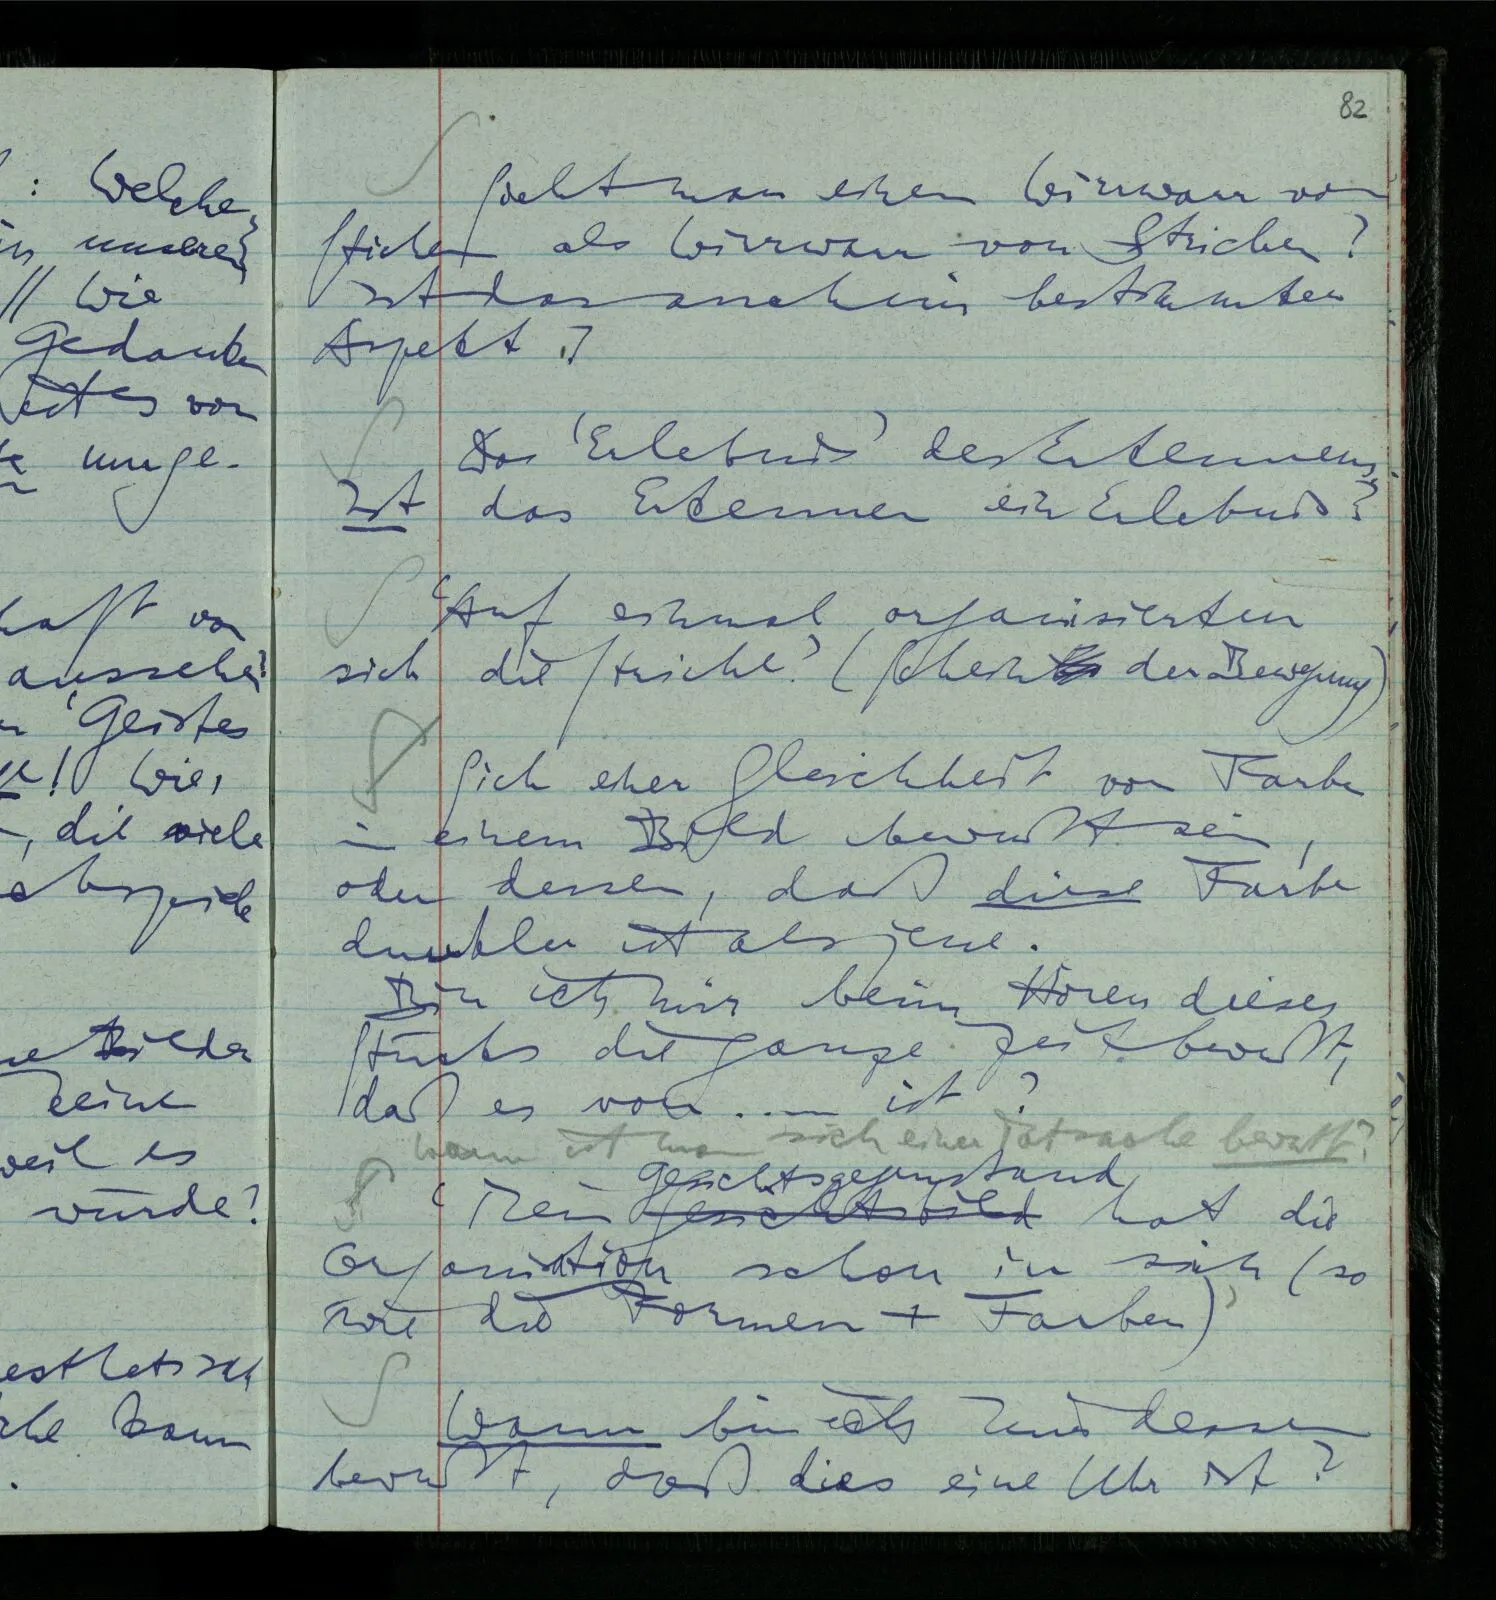 : Welche,
unserer
// Wie
Gedanken
von
unge-
von
aussehen?
'Geistes
! Wie,
, die viele
Bilder
keine
weil es
würde?
aesthetisch
kann
82
Sieht man einen Wirrwarr von
Strichen als Wirrwarr von Strichen?
Ist das auch ein bestimmter
Aspekt?
Das 'Erlebnis' des Erkennens.
Ist das Erkennen ein Erlebnis?
'Auf einmal organisierten
sich die Striche.' (Schein der Bewegung)
Sich einer Gleichheit von Farben
in einem Bild bewußt sein,
oder dessen, daß diese Farbe
dunkler ist als jene.
Bin ich mir beim Hören dieses
Stücks die ganze Zeit bewußt,
daß es von .... ist?
Wann ist man sich einer Tatsache bewußt?
Gesichtsgegenstand
'Mein Gesichtsbild hat die
Organisation schon in sich (so
wie die Formen + Farben)'
Wann bin ich mir dessen
bewußt, daß dies eine Uhr ist?